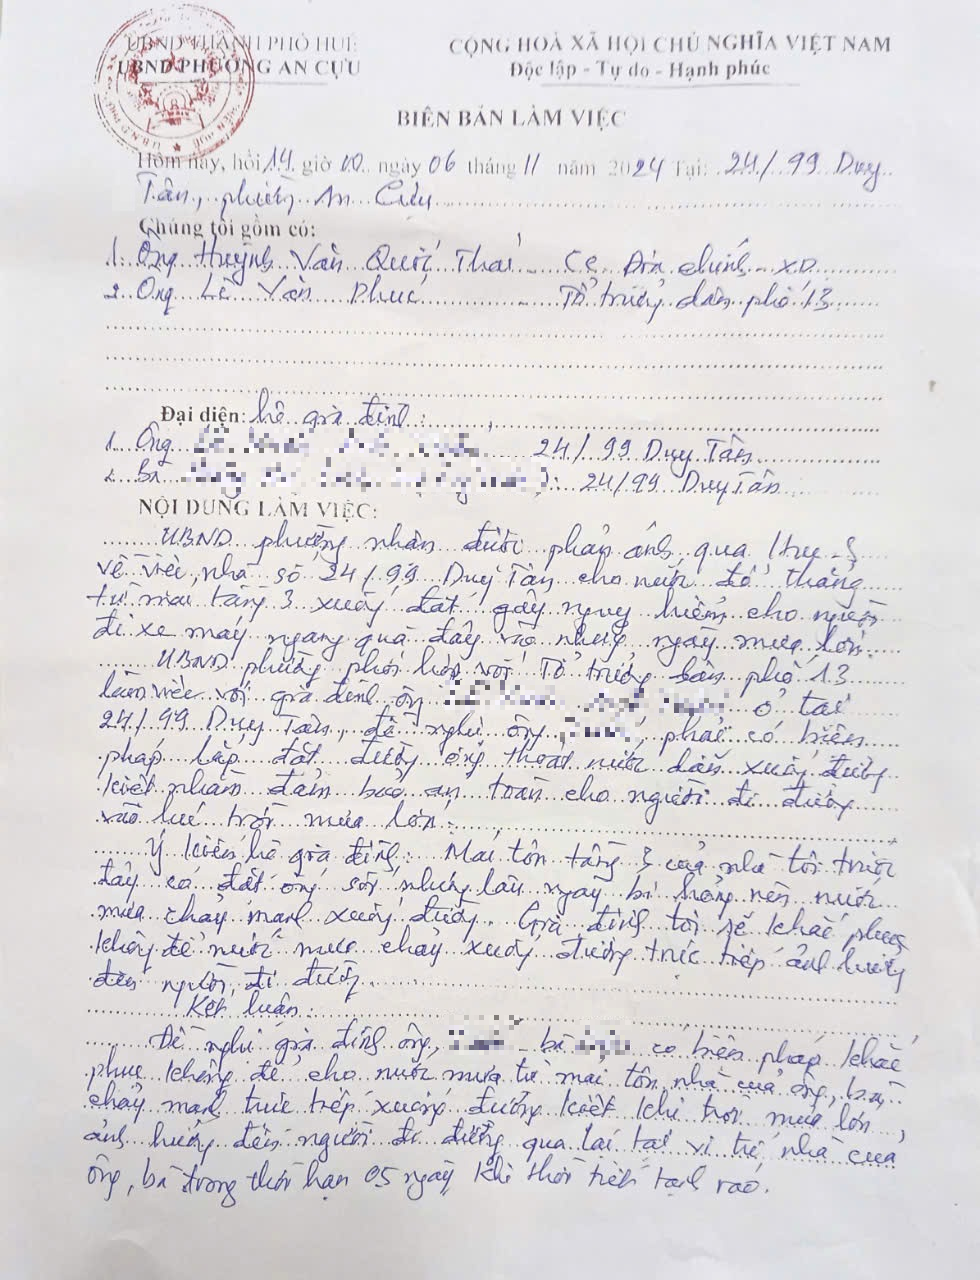 UBND THÀNH PHỐ HUẾ
UBND PHƯỜNG AN CỰU
CỘNG HOÀ XÃ HỘI CHỦ NGHĨA VIỆT NAM
Độc lập - Tự do - Hạnh phúc
BIÊN BẢN LÀM VIỆC
Hôm nay, hồi 14 giờ 00 ngày 06 tháng 11 năm 2024 Tại: 24/99 Duy
Tân, phường An Cựu
Chúng tôi gồm có:
1. Ông Huỳnh Văn Quốc Thái CC Địa chính - XD
2. Ông Lê Văn Phúc Tổ trưởng dân phố 13
Đại diện: hộ gia đình:
1. Ông 24/99 Duy Tân
2. Bà : 24/99 Duy Tân
NỘI DUNG LÀM VIỆC:
UBND phường nhận được phản ánh qua Hue-S
về việc, nhà số 24/99 Duy Tân cho nước đổ thẳng
từ mái tầng 3 xuống đất gây nguy hiểm cho người
đi xe máy ngang qua đây vào những ngày mưa lớn.
UBND phường phối hợp với Tổ trưởng dân phố 13
làm việc với gia đình ông ở tại
24/99 Duy Tân, đề nghị ông phải có biện
pháp lắp đặt đường ống thoát nước dẫn xuống đường
kiệt nhằm đảm bảo an toàn cho người đi đường
vào lúc trời mưa lớn.
Ý kiến hộ gia đình: Mái tôn tầng 3 của nhà tôi trước
đây có đặt ống xối nhưng lâu ngày bị hỏng nên nước
mưa chảy mạnh xuống đường. Gia đình tôi sẽ khắc phục
không để nước mưa chảy xuống đường trực tiếp ảnh hưởng
đến người đi đường.
Kết luận:
Đề nghị gia đình ông, - bà có biện pháp khắc
phục không để cho nước mưa từ mái tôn nhà của ông, bà
chảy mạnh trực tiếp xuống đường kiệt khi trời mưa lớn,
ảnh hưởng đến người đi đường qua lại tại vị trí nhà của
ông, bà trong thời hạn 05 ngày khi thời tiết tạnh ráo.